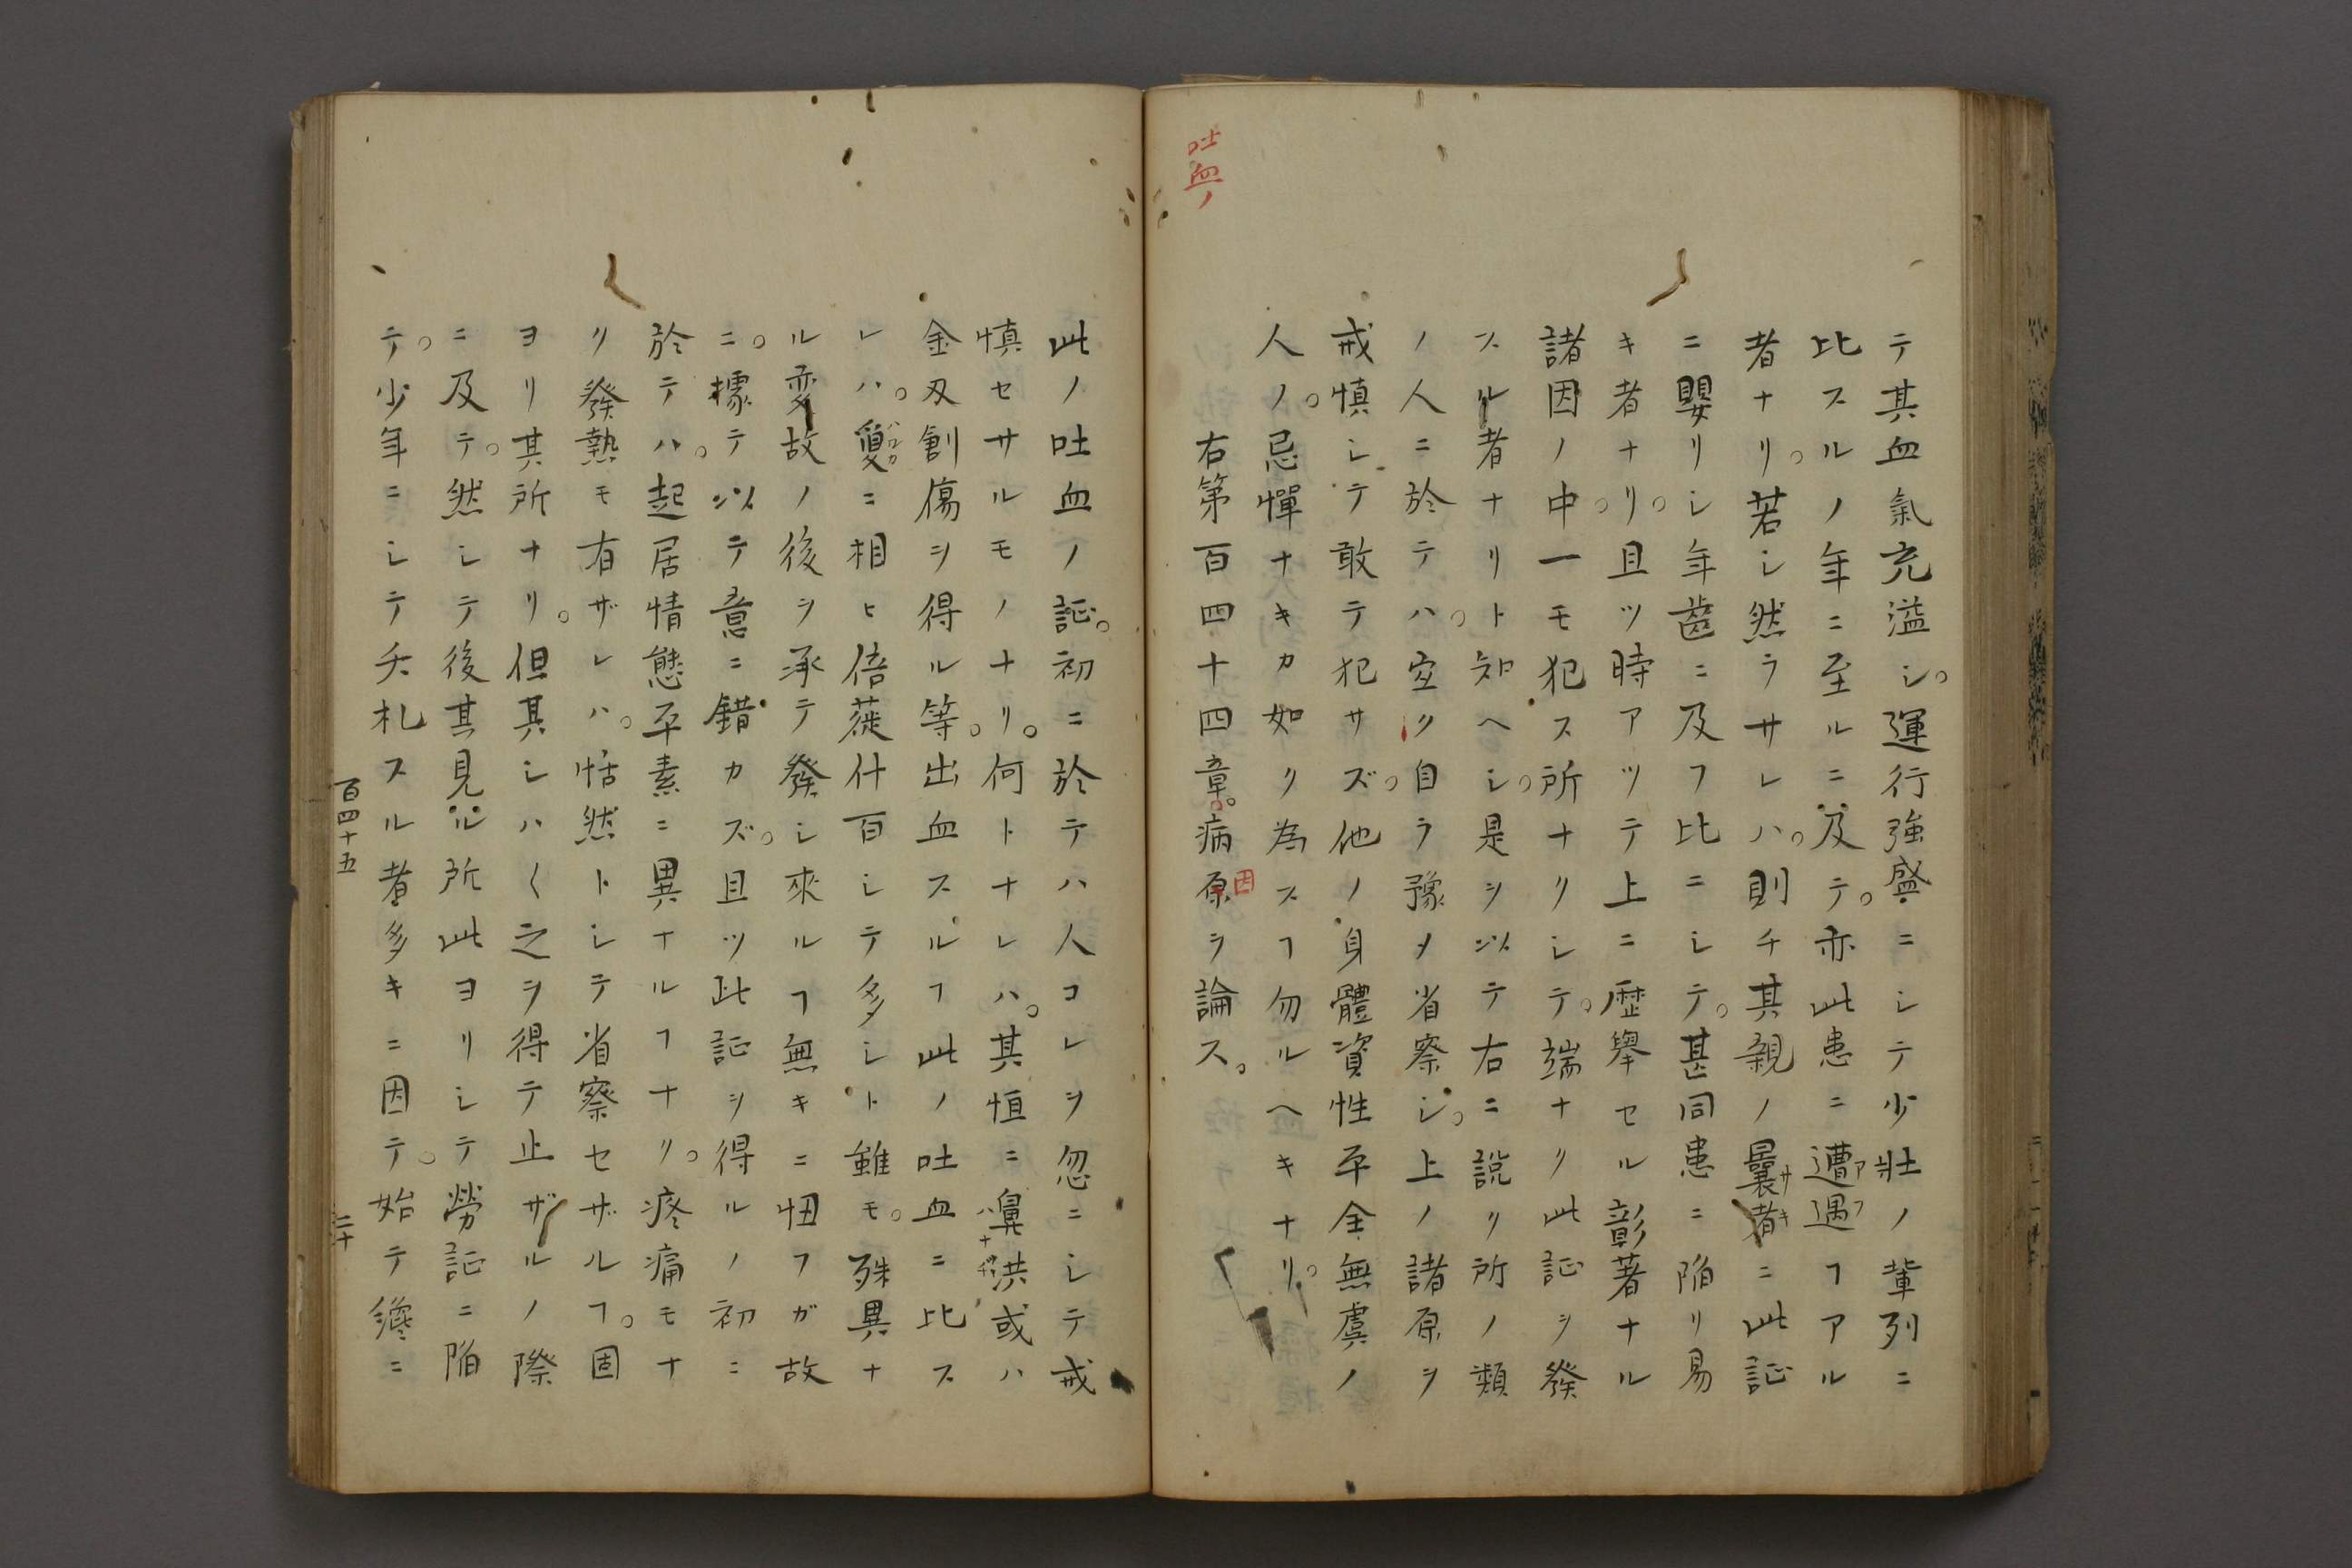 吐血ノ
テ其血氣充溢シ。運行強盛ニシテ少壯ノ輩列ニ
比スルノ年ニ至ルニ及テ。亦此患ニ遭遇フヿアル
者ナリ。若シ然ラサレハ。則チ其親ノ曩者ニ此証
ニ嬰リシ年齒ニ及フ比ニシテ。甚同患ニ陷リ易
キ者ナリ。且ツ時アツテ上ニ歴舉セル彰著ナル
諸因ノ中一モ犯ス所ナクシテ。端ナク此証ヲ發
スル者ナリト知ヘシ。是ヲ以テ右ニ説ク所ノ類
ノ人ニ於テハ。宜ク自ラ豫メ省察シ。上ノ諸原ヲ
戒慎シテ敢テ犯サズ。他ノ身體資性平全無虞ノ
人ノ。忌憚ナキカ如ク為スヿ勿ルヘキナリ。
右第百四十四章。病原ヲ論ス。
因
此ノ吐血ノ証。初ニ於テハ人コレヲ忽ニシテ戒
慎セサルモノナリ。何トナレハ。其恒ニ鼻洪或ハ
金刃創傷ヲ得ル等。出血スルヿ此ノ吐血ニ比ス
レハ。夐ニ相ヒ倍蓰什百シテ多シト雖モ。殊異ナ
ル変故ノ後ヲ承テ發シ來ルヿ無キニ忸フガ故
ニ。據テ以テ意ニ錯カズ。且ツ此証ヲ得ルノ初ニ
於テハ。起居情態平素ニ異ナルヿナク。疼痛モナ
ク發熱モ有ザレハ。恬然トシテ省察セザルヿ。固
ヨリ其所ナリ。但其シハ〱之ヲ得テ止ザルノ際
ニ及テ。然シテ後其見ル所此ヨリシテ勞証ニ陷
テ。少年ニシテ夭札スル者多キニ因テ。始テ纔ニ
百四十五
二十